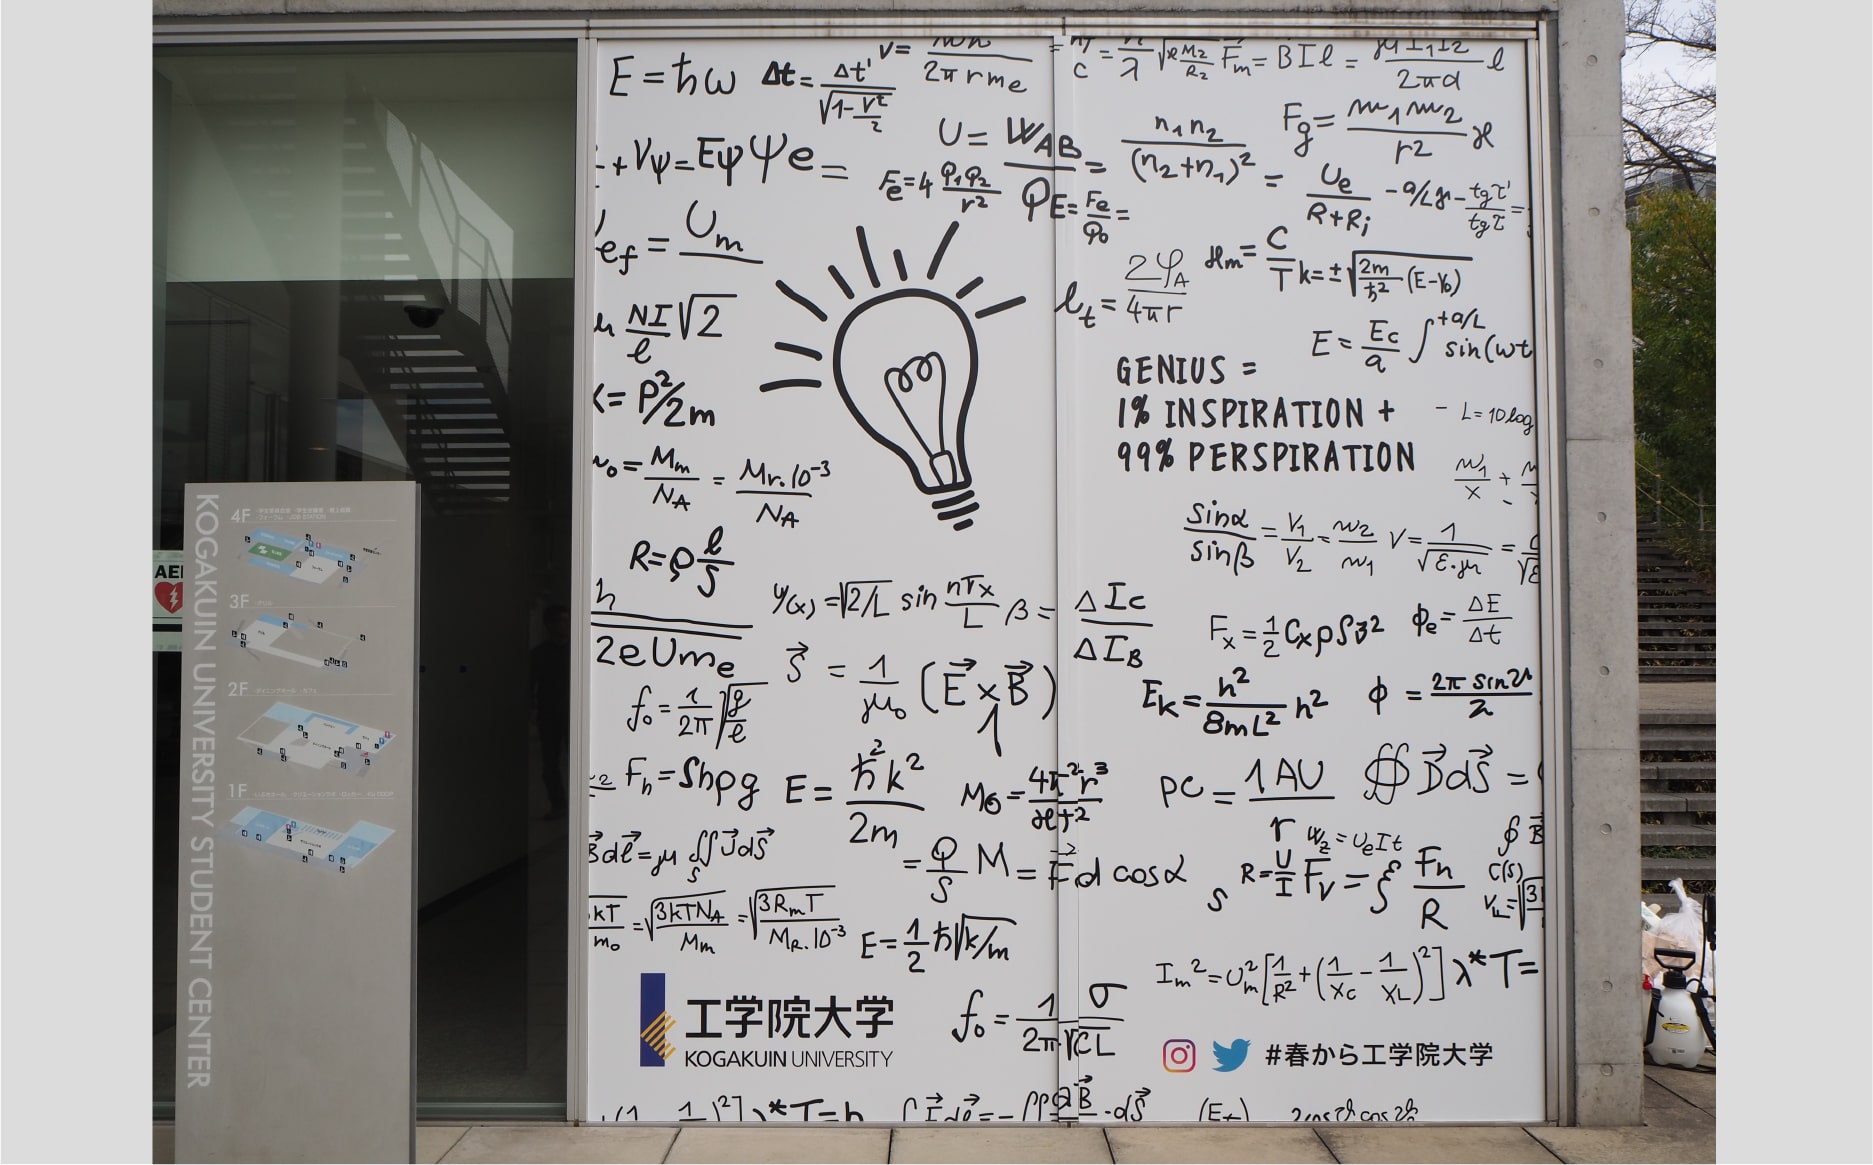 E = ħω
Δt = Δt' / √1-v²/2
v = / 2πrme
Fm = BIl = / 2πd l
+ Vψ = Eψ ψe =
U = WAB / Q
= n1n2 / (n2+n1)²
Fg = m1m2 / r² ϰ
Fe = 4 Q1Q2 / r²
E = Fe / Q0 =
= Ue / R+Ri
ef = Um
2φA / 4πr
C / T
k = ± √2m/ħ² (E-V0)
lt =
μ NI/l √2
E = Ec/a ∫ +a/L sin(ωt
GENIUS =
1% INSPIRATION +
99% PERSPIRATION
- L = 10 log
= P²/2m
0 = Mm / NA = Mr.10⁻³ / NA
sinα / sinβ = V1 / V2 = w2 / w1
V = 1 / √ε.μ =
R = ρ l/S
h / 2eUme
ψ(x) = √2/L sin nπx / L
β = ΔIc / ΔIB
Fx = 1/2 CxρSv²
Φe = ΔE / Δt
S⃗ = 1/μ0 (E⃗ × B⃗)
f0 = 1/2π √g/l
Ek = h² / 8mL² n²
ϕ = 2π sin
Fh = Shρg
E = ħ²k² / 2m
M⊙ = 4π²r³ / ϰt²
PC = 1AU / r
∯ D⃗dS⃗ =
B⃗dl⃗ = μ ∬ J⃗dS⃗
S
= Q/S
M = F⃗d cosα
= UeIt
R = U/I
Fv = Fn / R
∮ B⃗
C(S)
kT / m0 = √3kTNA / Mm = √3RmT / MR.10⁻³
E = 1/2 ħ√k/m
Im² = Um² [1/R² + (1/XC - 1/XL)²]
λ*T =
f0 = 1 / 2π√CL
σ
工学院大学
KOGAKUIN UNIVERSITY
#春から工学院大学
KOGAKUIN UNIVERSITY STUDENT CENTER
4F
3F
2F
1F
AE